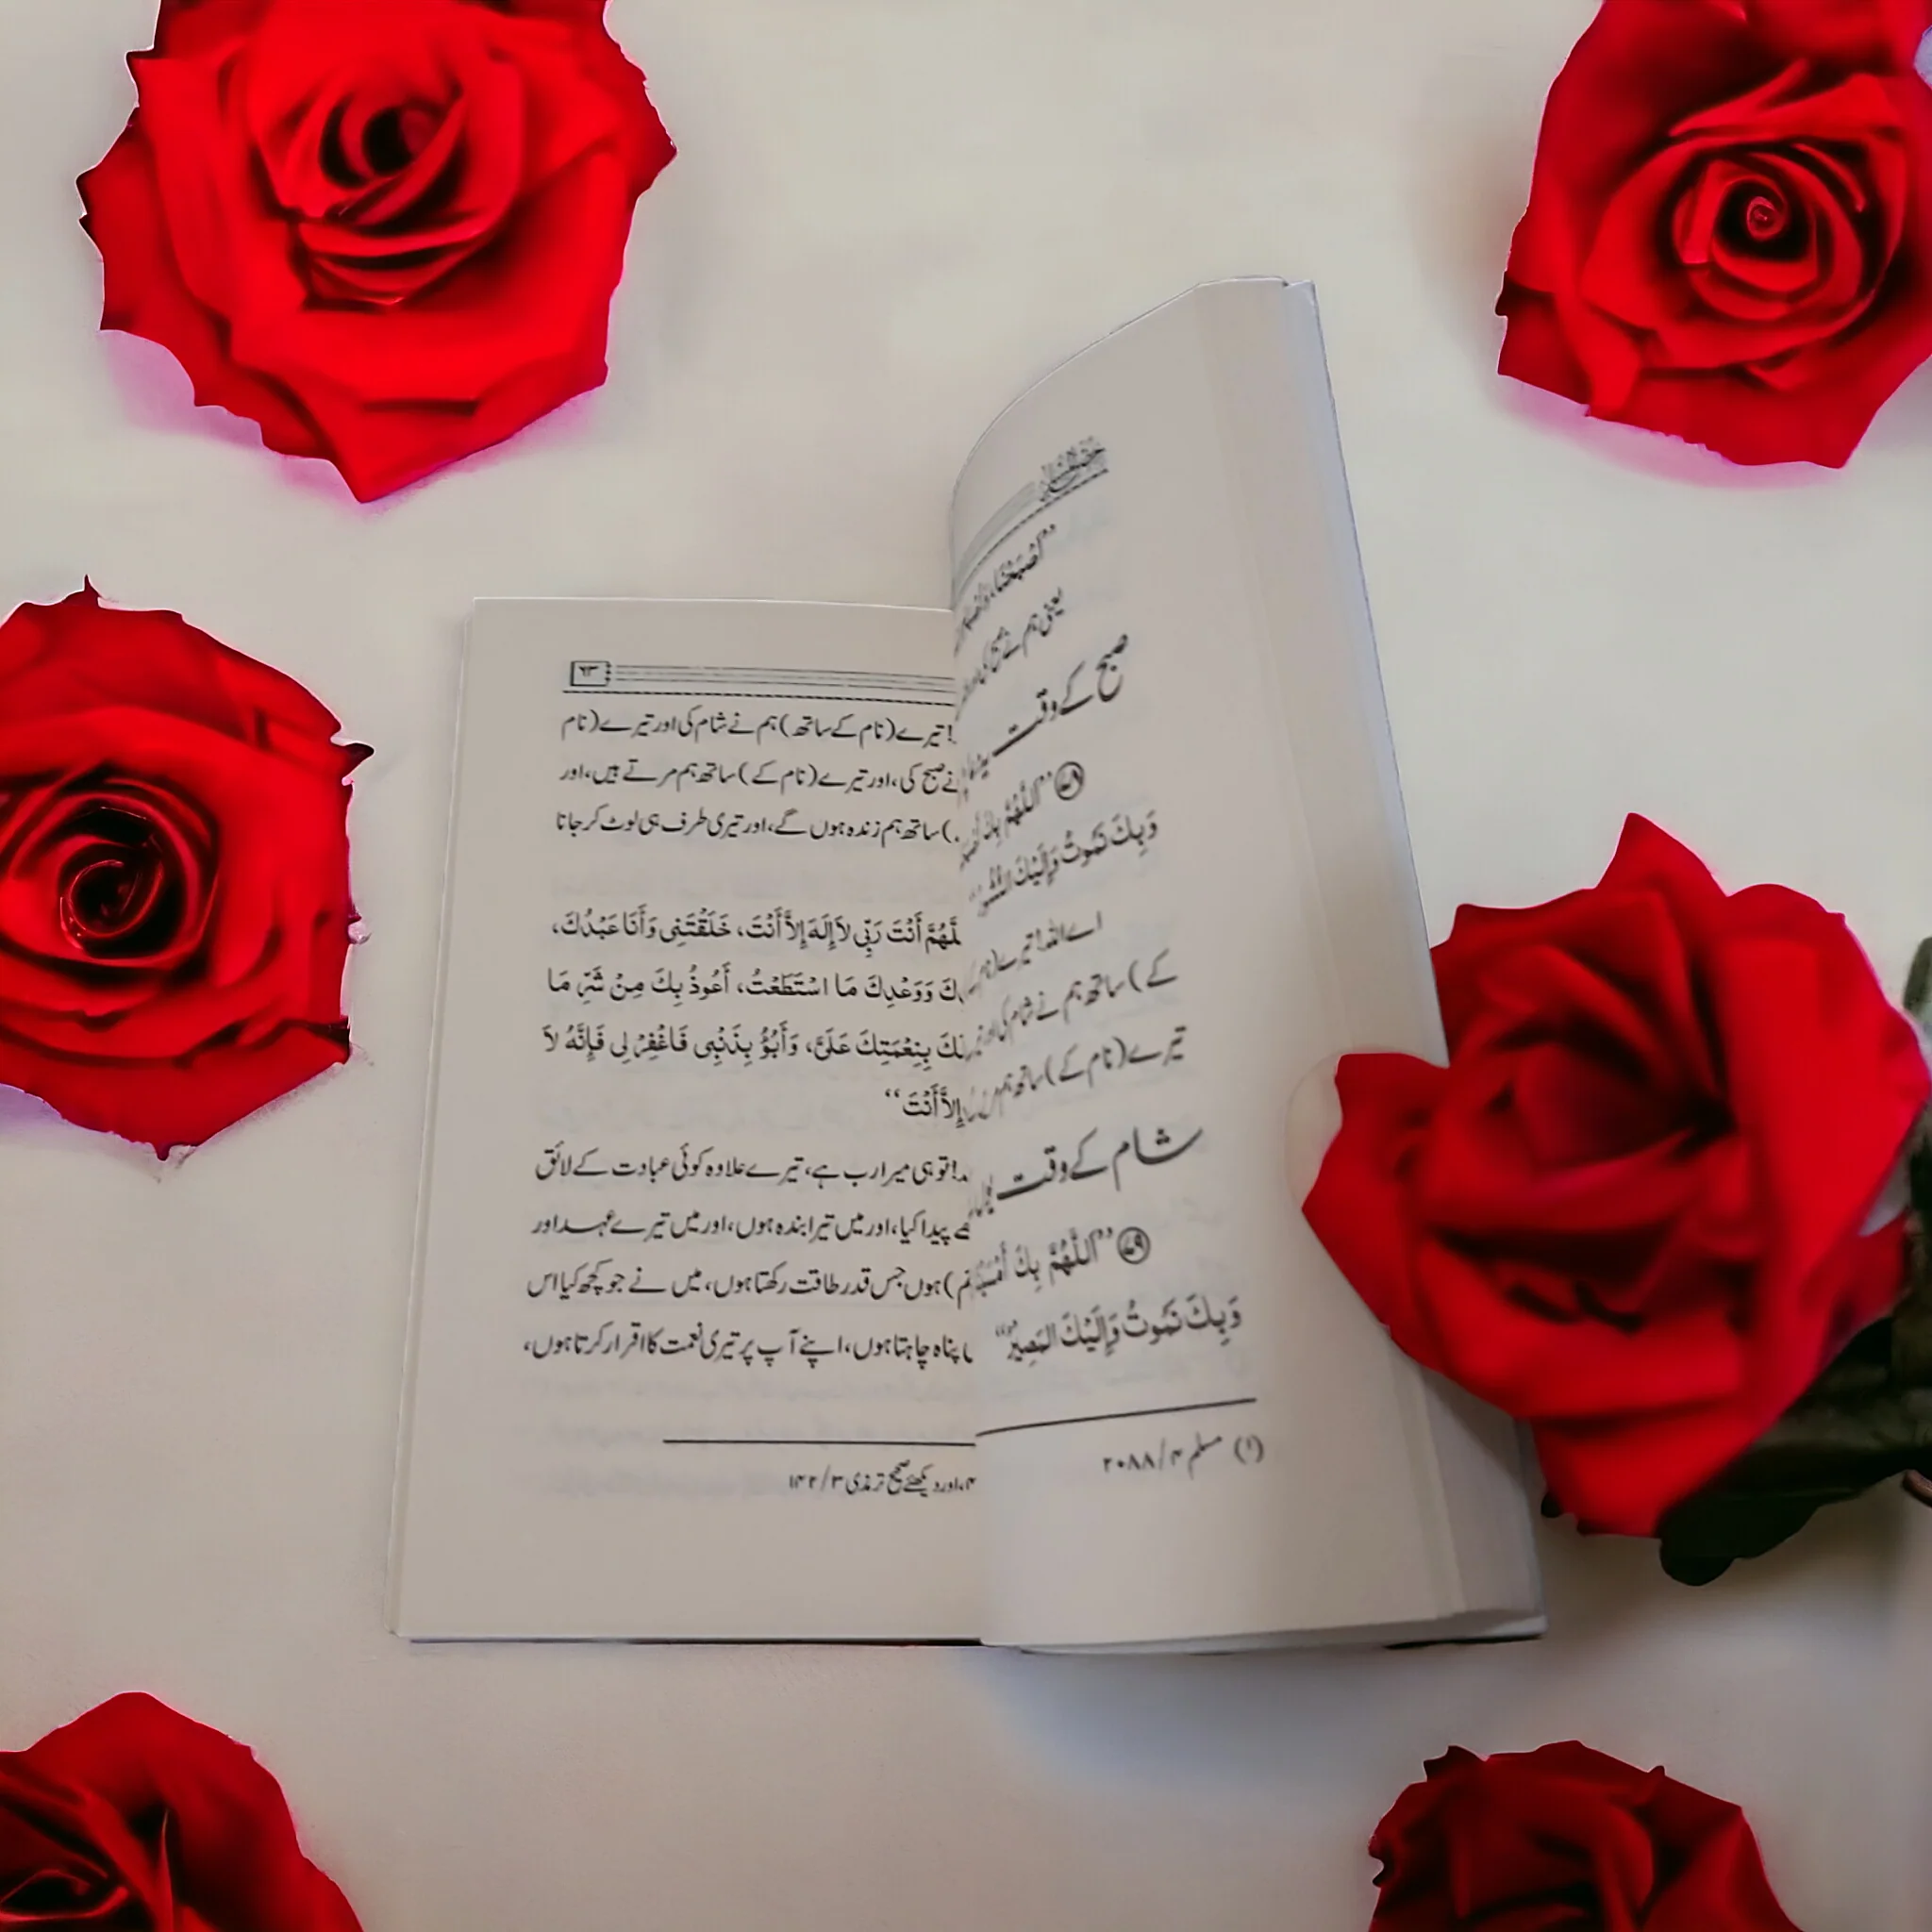 صبح کے وقت
﴿۷۸﴾ ”اَللّٰهُمَّ بِكَ
وَبِكَ نَمُوتُ وَإِلَيْكَ
اے اللہ! تیرے (نام
کے) ساتھ ہم نے شام کی اور
تیرے (نام کے) ساتھ ہم
شام کے وقت
﴿۷۹﴾ ”اَللّٰهُمَّ بِكَ
وَبِكَ نَمُوتُ وَإِلَيْكَ الْمَصِيْرُ“
(۱) مسلم ۴/۲۰۸۸
۶۳
! تیرے (نام کے ساتھ) ہم نے شام کی اور تیرے (نام
نے صبح کی، اور تیرے (نام کے) ساتھ ہم مرتے ہیں، اور
) ساتھ ہم زندہ ہوں گے، اور تیری طرف ہی لوٹ کر جانا
أَنْتَ رَبِّي لاَ إِلَهَ إِلاَّ أَنْتَ، خَلَقْتَنِى وَأَنَا عَبْدُكَ،
وَوَعْدِكَ مَا اسْتَطَعْتُ، أَعُوذُ بِكَ مِنْ شَرِّ مَا
بِنِعْمَتِكَ عَلَىَّ، وَأَبُوْءُ بِذَنْبِى فَاغْفِرْ لِى فَإِنَّهُ لاَ
إِلاَّ أَنْتَ“
! تو ہی میرا رب ہے، تیرے علاوہ کوئی عبادت کے لائق
پیدا کیا، اور میں تیرا بندہ ہوں، اور میں تیرے عہد اور
) ہوں جس قدر طاقت رکھتا ہوں، میں نے جو کچھ کیا اس
پناہ چاہتا ہوں، اپنے آپ پر تیری نعمت کا اقرار کرتا ہوں،
، اور دیکھئے صحیح ترمذی ۳/۱۴۲